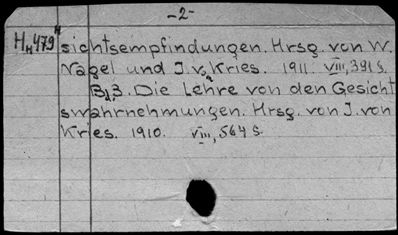 -2-
HH479 sichtsempfindungen. Hrsg. von W.
Nagel und J. v. Kries. 1911. VIII, 391 S.
Bd. 3. Die Lehre von den Gesicht
swahrnehmungen. Hrsg. von J. von
Kries. 1910. VIII, 564 S.